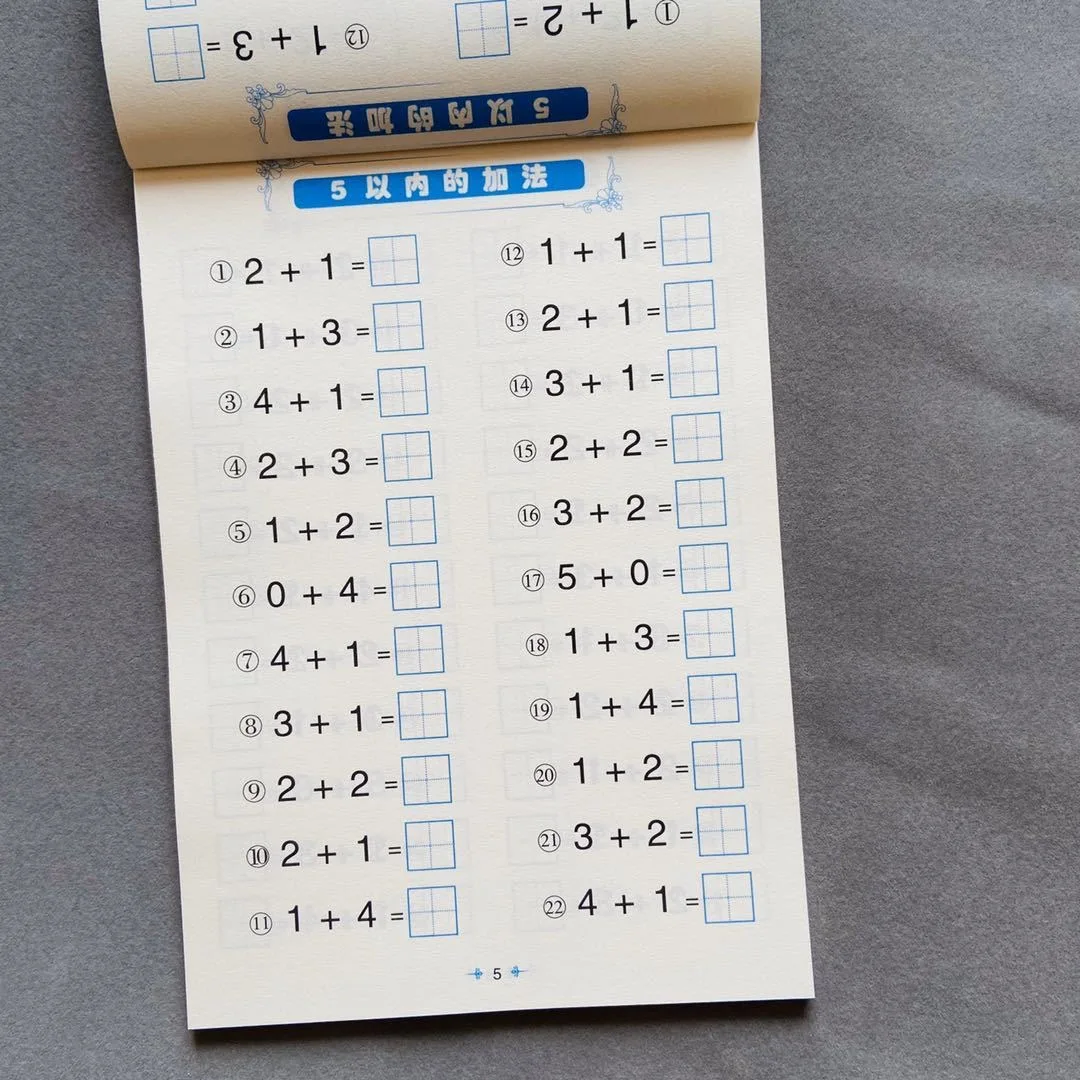 ① 1 + 2 =
⑫ 1 + 3 =
5 以内的加法
5 以内的加法
① 2 + 1 =
② 1 + 3 =
③ 4 + 1 =
④ 2 + 3 =
⑤ 1 + 2 =
⑥ 0 + 4 =
⑦ 4 + 1 =
⑧ 3 + 1 =
⑨ 2 + 2 =
⑩ 2 + 1 =
⑪ 1 + 4 =
⑫ 1 + 1 =
⑬ 2 + 1 =
⑭ 3 + 1 =
⑮ 2 + 2 =
⑯ 3 + 2 =
⑰ 5 + 0 =
⑱ 1 + 3 =
⑲ 1 + 4 =
⑳ 1 + 2 =
㉑ 3 + 2 =
㉒ 4 + 1 =
5